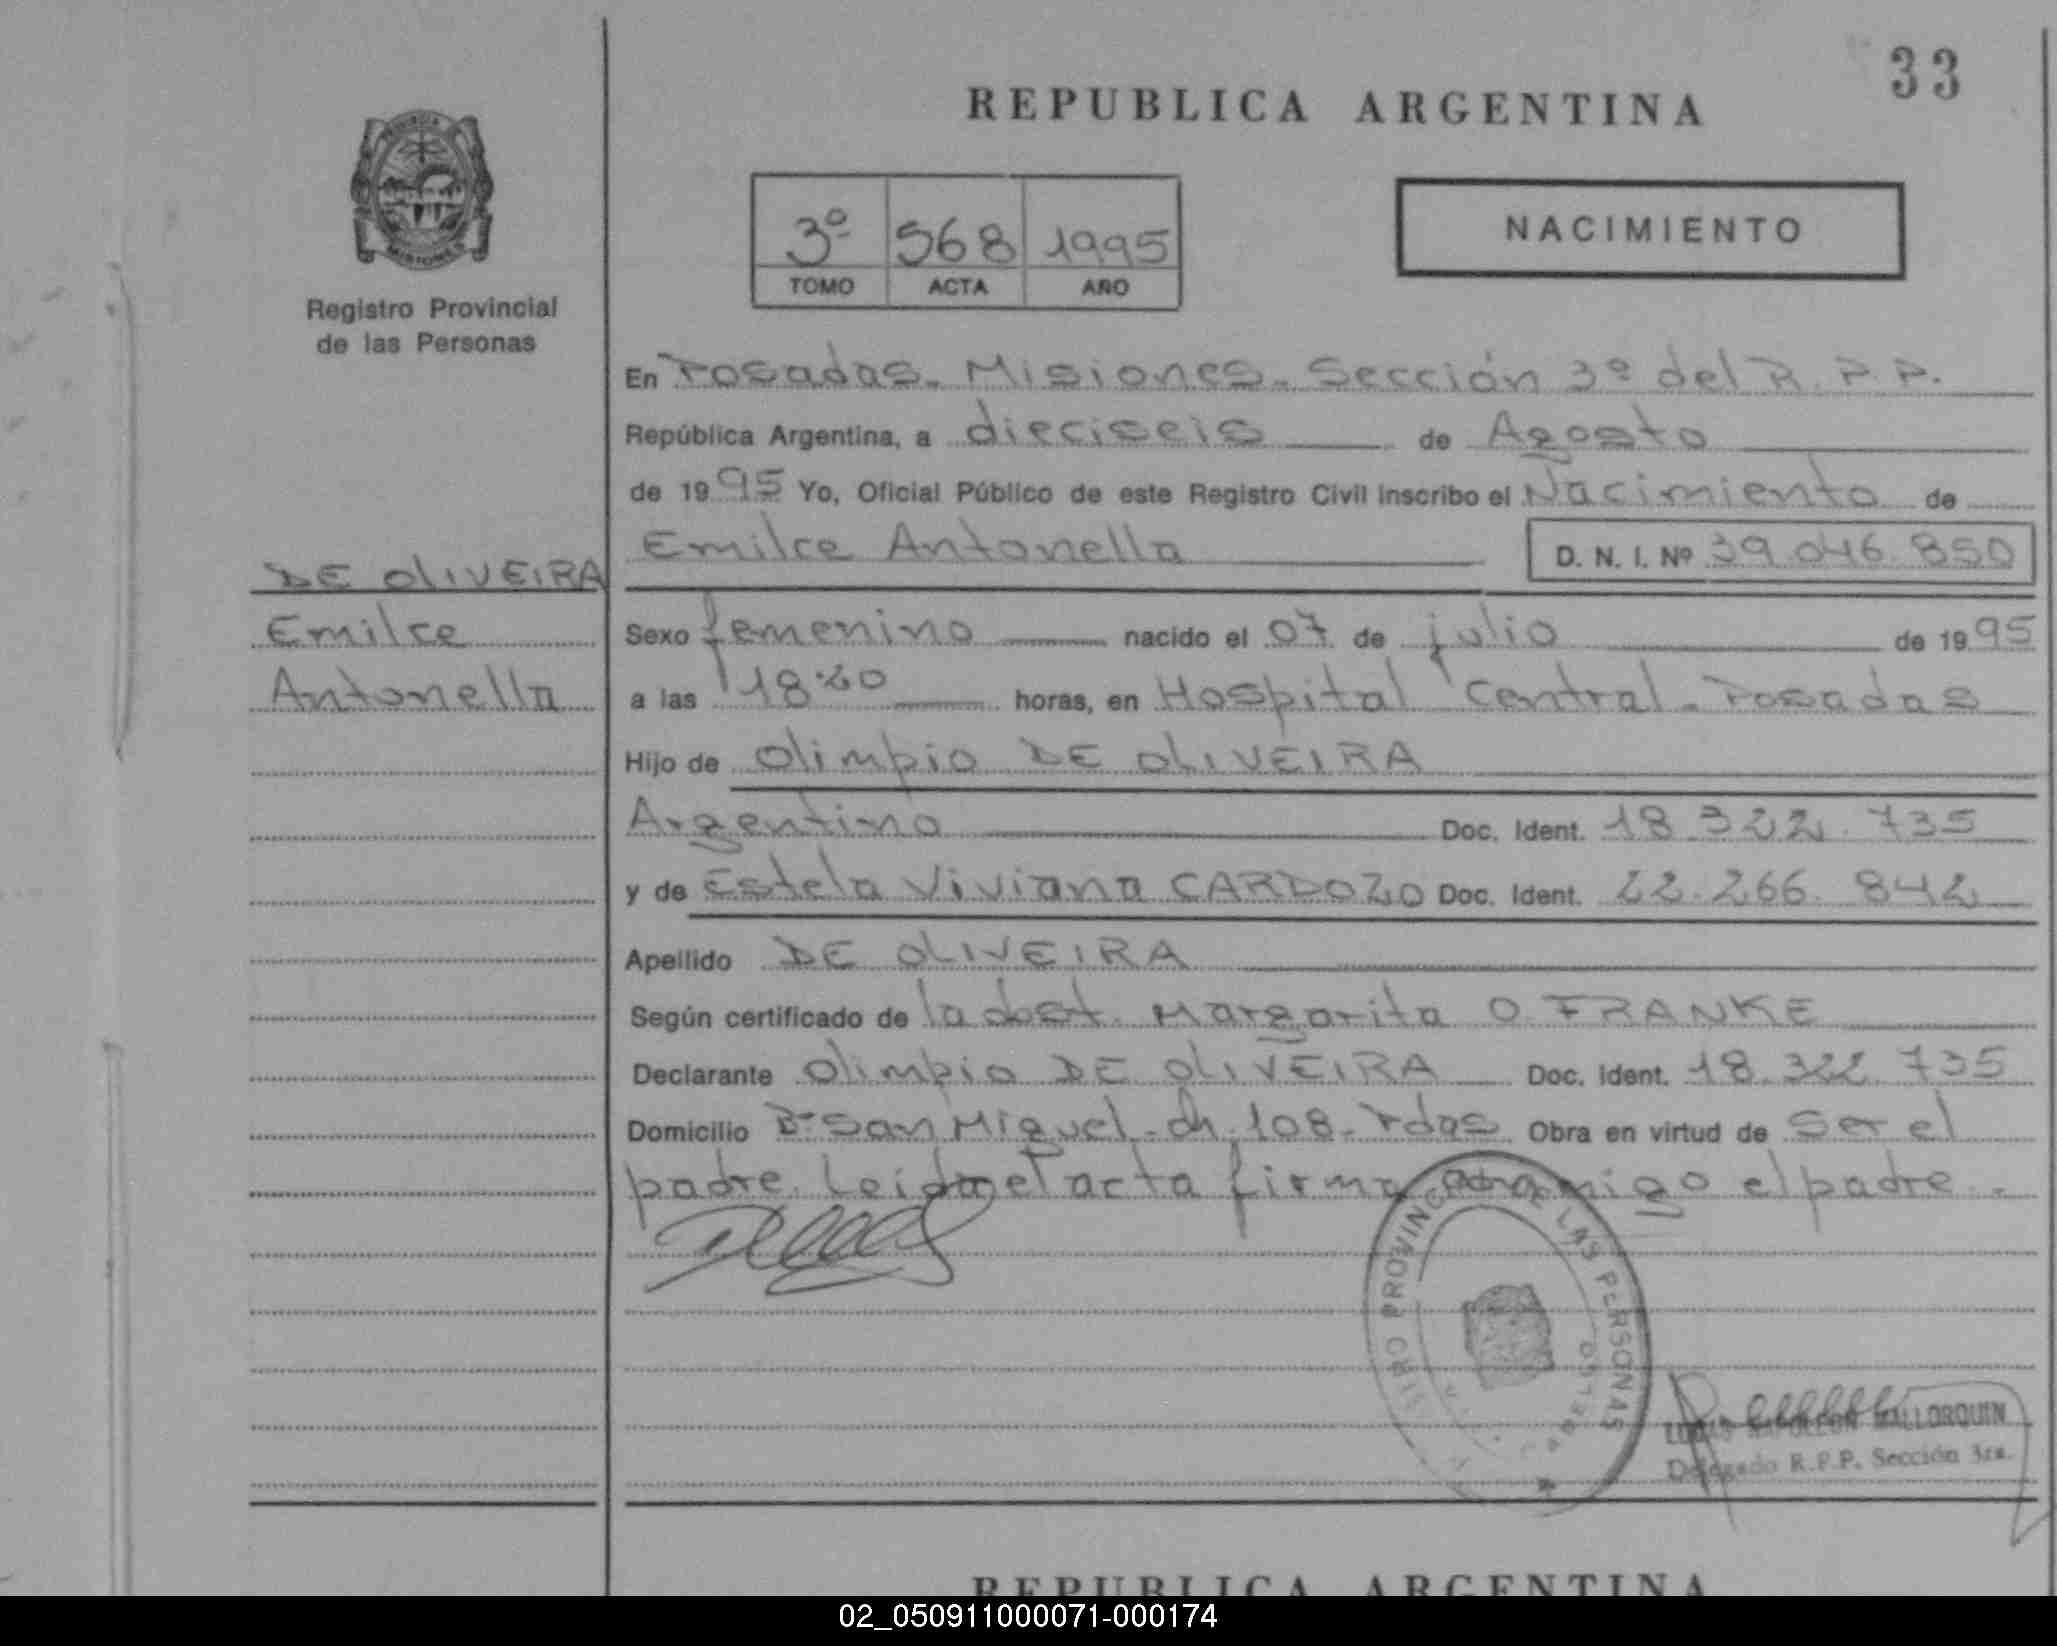 33
REPUBLICA ARGENTINA
NACIMIENTO
3º 568 1995
TOMO ACTA AÑO
PROVINCIA
MISIONES
Registro Provincial
de las Personas
DE OLIVEIRA
Emilce
Antonella
En Posadas. Misiones. Sección 3º del R. P. P.
República Argentina, a dieciseis de Agosto
de 1995 Yo, Oficial Público de este Registro Civil inscribo el Nacimiento de
Emilce Antonella D. N. I. Nº 39.046.850
Sexo femenino nacido el 07 de julio de 1995
a las 18:20 horas, en Hospital Central. Posadas
Hijo de Olimpio DE OLIVEIRA
Argentino Doc. Ident. 18.322.735
y de Estela Viviana CARDOZO Doc. Ident. 22.266.842
Apellido DE OLIVEIRA
Según certificado de la obst. Margarita O. FRANKE
Declarante Olimpio DE OLIVEIRA Doc. Ident. 18.322.735
Domicilio Bº San Miguel - ch. 108 - Pdas Obra en virtud de ser el
padre. Leida el acta firma conmigo el padre.
PROVINCIAL DE LAS PERSONAS
LUCAS NAPOLEON MALLORQUIN
Delegado R.P.P. Sección 3ra.
REPUBLICA ARGENTINA
02_050911000071-000174